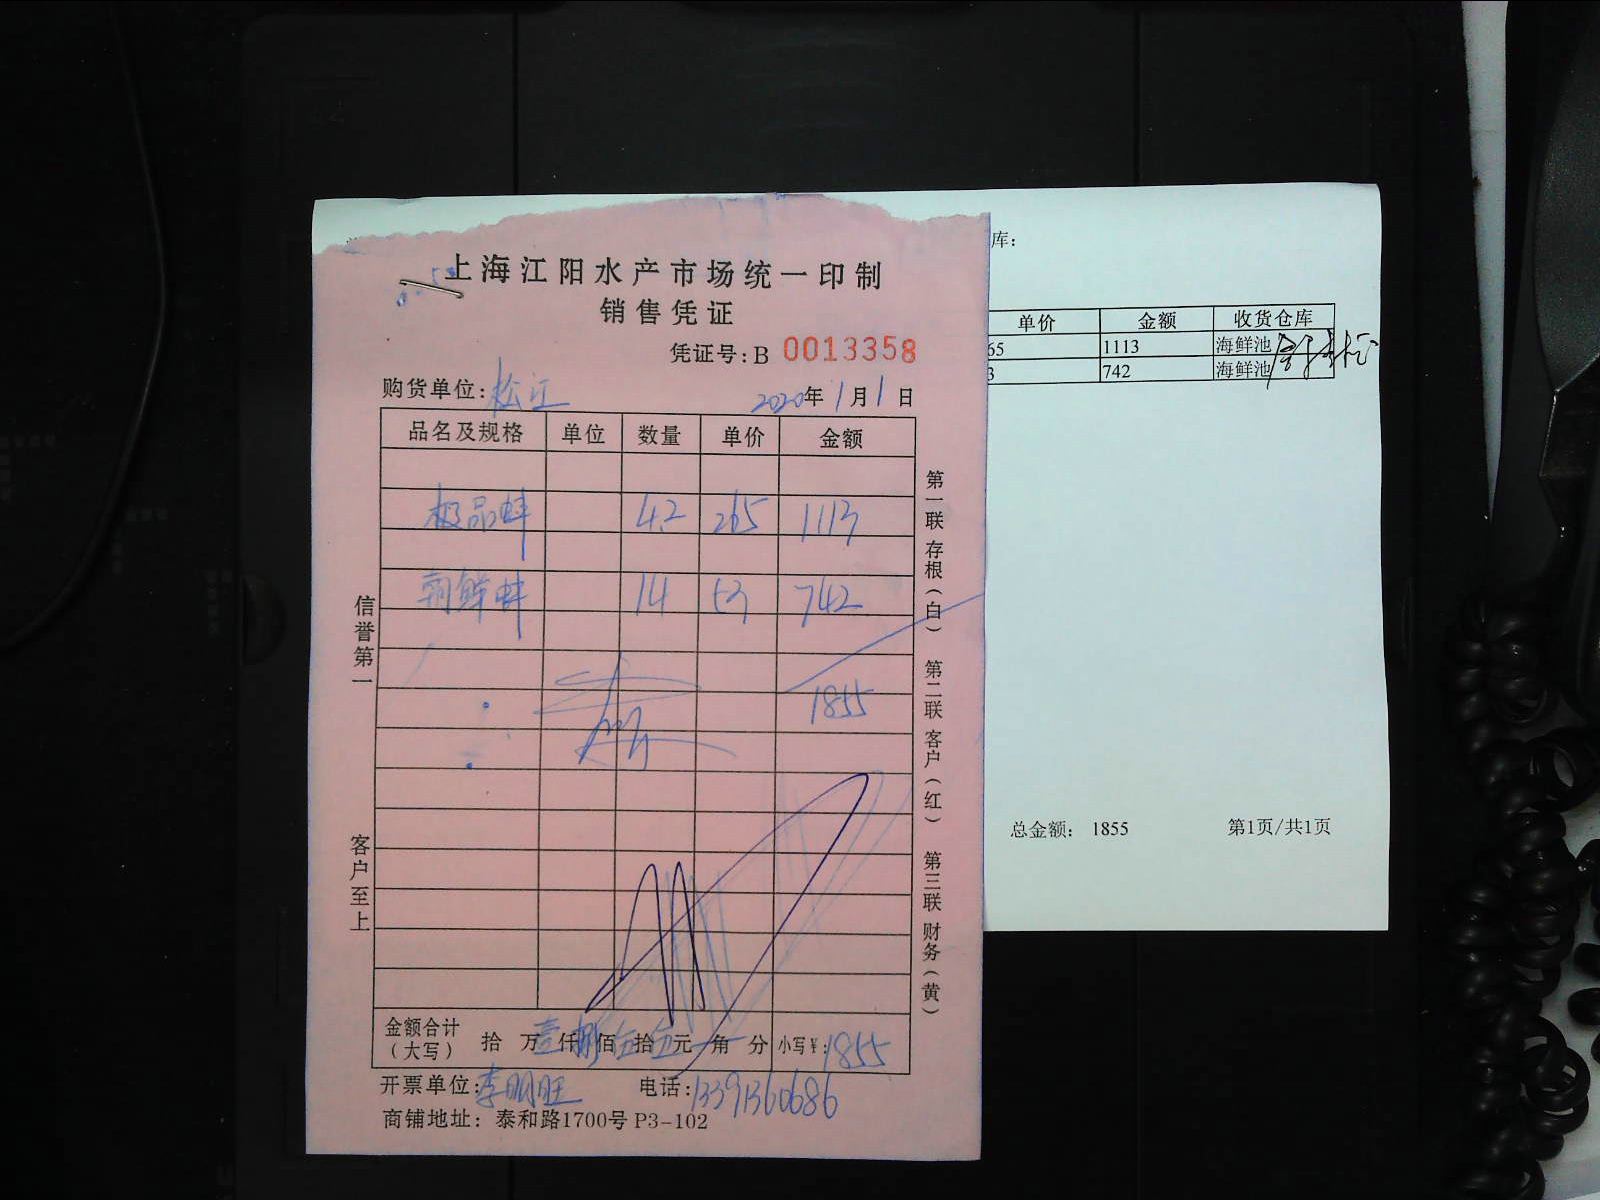 上海江阳水产市场统一印制
销售凭证
凭证号:B 0013358
购货单位:松江 2020年1月1日
品名及规格 单位 数量 单价 金额
极品蚌 4.2 265 1113
朝鲜蚌 14 53 742
1855
金额合计(大写) 拾 万壹仟捌佰伍拾伍元 角 分 小写¥:1855
开票单位:李明旺 电话:13391360686
商铺地址: 泰和路1700号 P3-102
信誉第一
客户至上
第一联存根(白)
第二联客户(红)
第三联财务(黄)
库:
单价 金额 收货仓库
65 1113 海鲜池
3 742 海鲜池
总金额: 1855 第1页/共1页